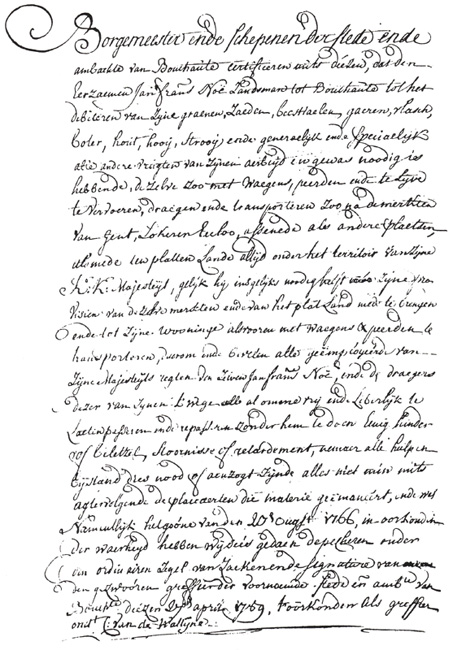 Borgemeester ende schepenen der stede ende
ambachte van Bouchaute certificeren mits dezen, dat den
Eerzaemen Jan frans Noë Landsman tot Bouchaute tot het
debiteren van Zijne graenen, Zaeden, beestiaelen, gaeren, vlasch,
boter, hout, hooij, Strooij ende generaelijk ende Specialijk
alle andere vrugten van Zijnen arbeijd en gewas noodig is
hebbende, de Zelve Zoo met Waegens, peerden ende te Lijve
te vervoeren, draegen ende transporteren Zoo na de merkten
van Gent, Lokeren Eecloo, assenede als andere plaetsen
als mede ten platten Lande altijd onder het territoir van Zijne
K: K: Majesteijt, gelijk hij insgelijks noodig heeft Zijne pro
visien van de Zelve merkten ende van het plat Land mede te brengen
ende tot Zijne wooninge met Waegens & peerden te
transporteren, ende alle geëmploijeerde van
Zijne Majesteijts regten den Zelven Jan frans Noë ende de draegers
dezer van Zijnen t' wege alomme vrij ende Liberlijk te
Laeten passeren ende repasseren zonder hem te doen Eenig hinder
of beletsel, Stoornisse of retardement, nemaer alle hulpe en
bijstand dies nood of aenzogt Zijnde alles niet min mits
agtervolgende de placcaerten die materie geëmaneert, ende
Namentlijk het gone van den 20 Augst 1766, in oorkonden
der waerheijd hebben wij deze gedaen depecheren onder
den ordinairen Zegel van Zaeken ende signature van
den gezwooren greffier der voornoemde stede en ambt van
Boucht. dezen april 1769, t' oorkonden Als greffier
van de Wattijne